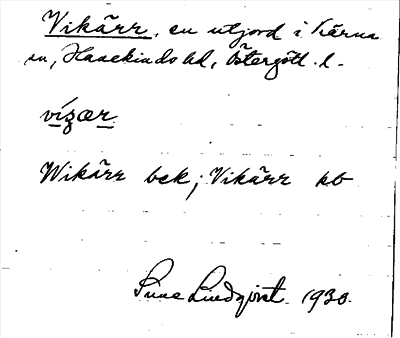 Vikärr, en utjord i Kärna
sn, Hanekinds hd, Östergötl. l.
víȥær
Wikärr bek; Vikärr kb
Sune Lindqvist. 1930.